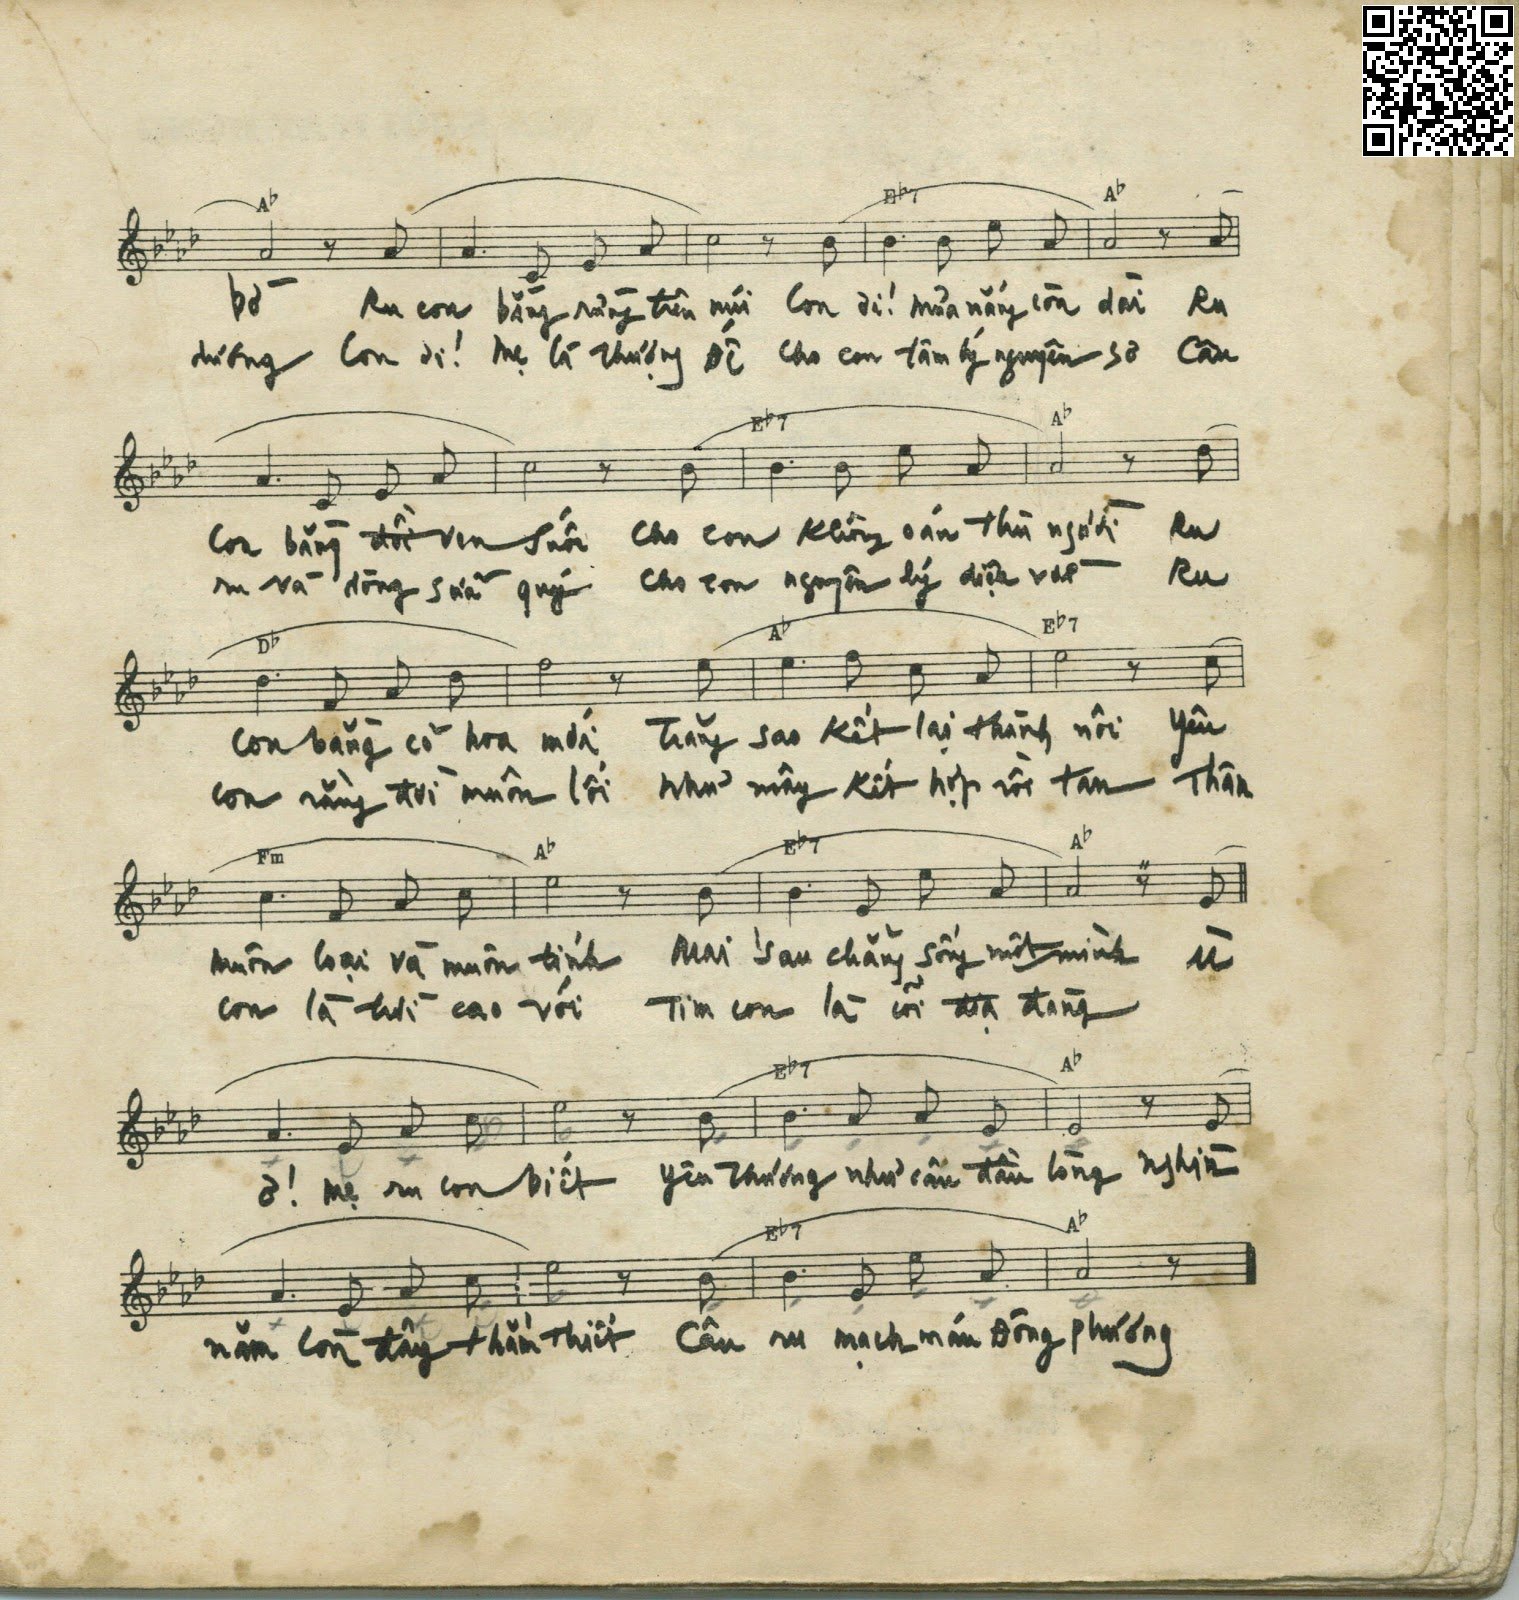 A♭ E♭7 A♭
bờ Ru con bằng rừng trên núi Con ơi! mưa nắng còn dài Ru
dương Con ơi! Mẹ là Thượng Đế Cho con tâm lý nguyên sơ Câu
E♭7 A♭
Con bằng đồi ven suối Cho con không oán thù người Ru
ru và dòng sữa quý Cho con nguyên lý diệu vời Ru
D♭ A♭ E♭7
Con bằng cỏ hoa mới Trăng sao kết lại thành nôi Yêu
con rằng đời muôn lối Như mây kết hợp rồi tan Thân
Fm A♭ E♭7 A♭
muôn loại và muôn tính Mai sau chẳng sống một mình Ù
con là trời cao vời Tim con là cõi địa đàng
E♭7 A♭
ơ! Mẹ ru con biết Yêu thương như câu đầu lòng Nghìn
E♭7 A♭
năm còn đây thắm thiết Câu ru mạch máu Đông phương